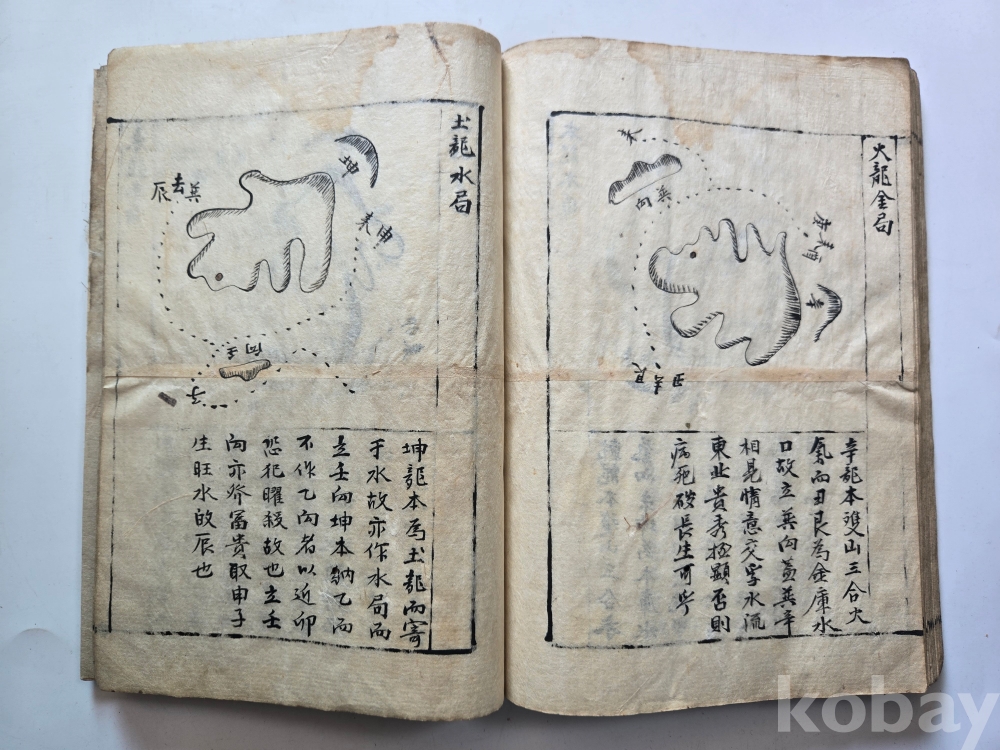 火龍金局
來
巽
向
庚來酉
辛
丑去艮
辛龍本雙山三合火
氣而丑艮為金庫水
口故立巽向盖巽辛
相見情意交孚水流
東北貴秀極顯否則
病死破長生可乎
土龍水局
坤
申
來
巽去辰
壬向
子
坤龍本為土龍而寄
于水故亦作水局而
立壬向坤本納乙而
不作乙向者以近卯
恐犯曜殺故也立壬
向亦發富貴取申子
生旺水故辰也
kobay